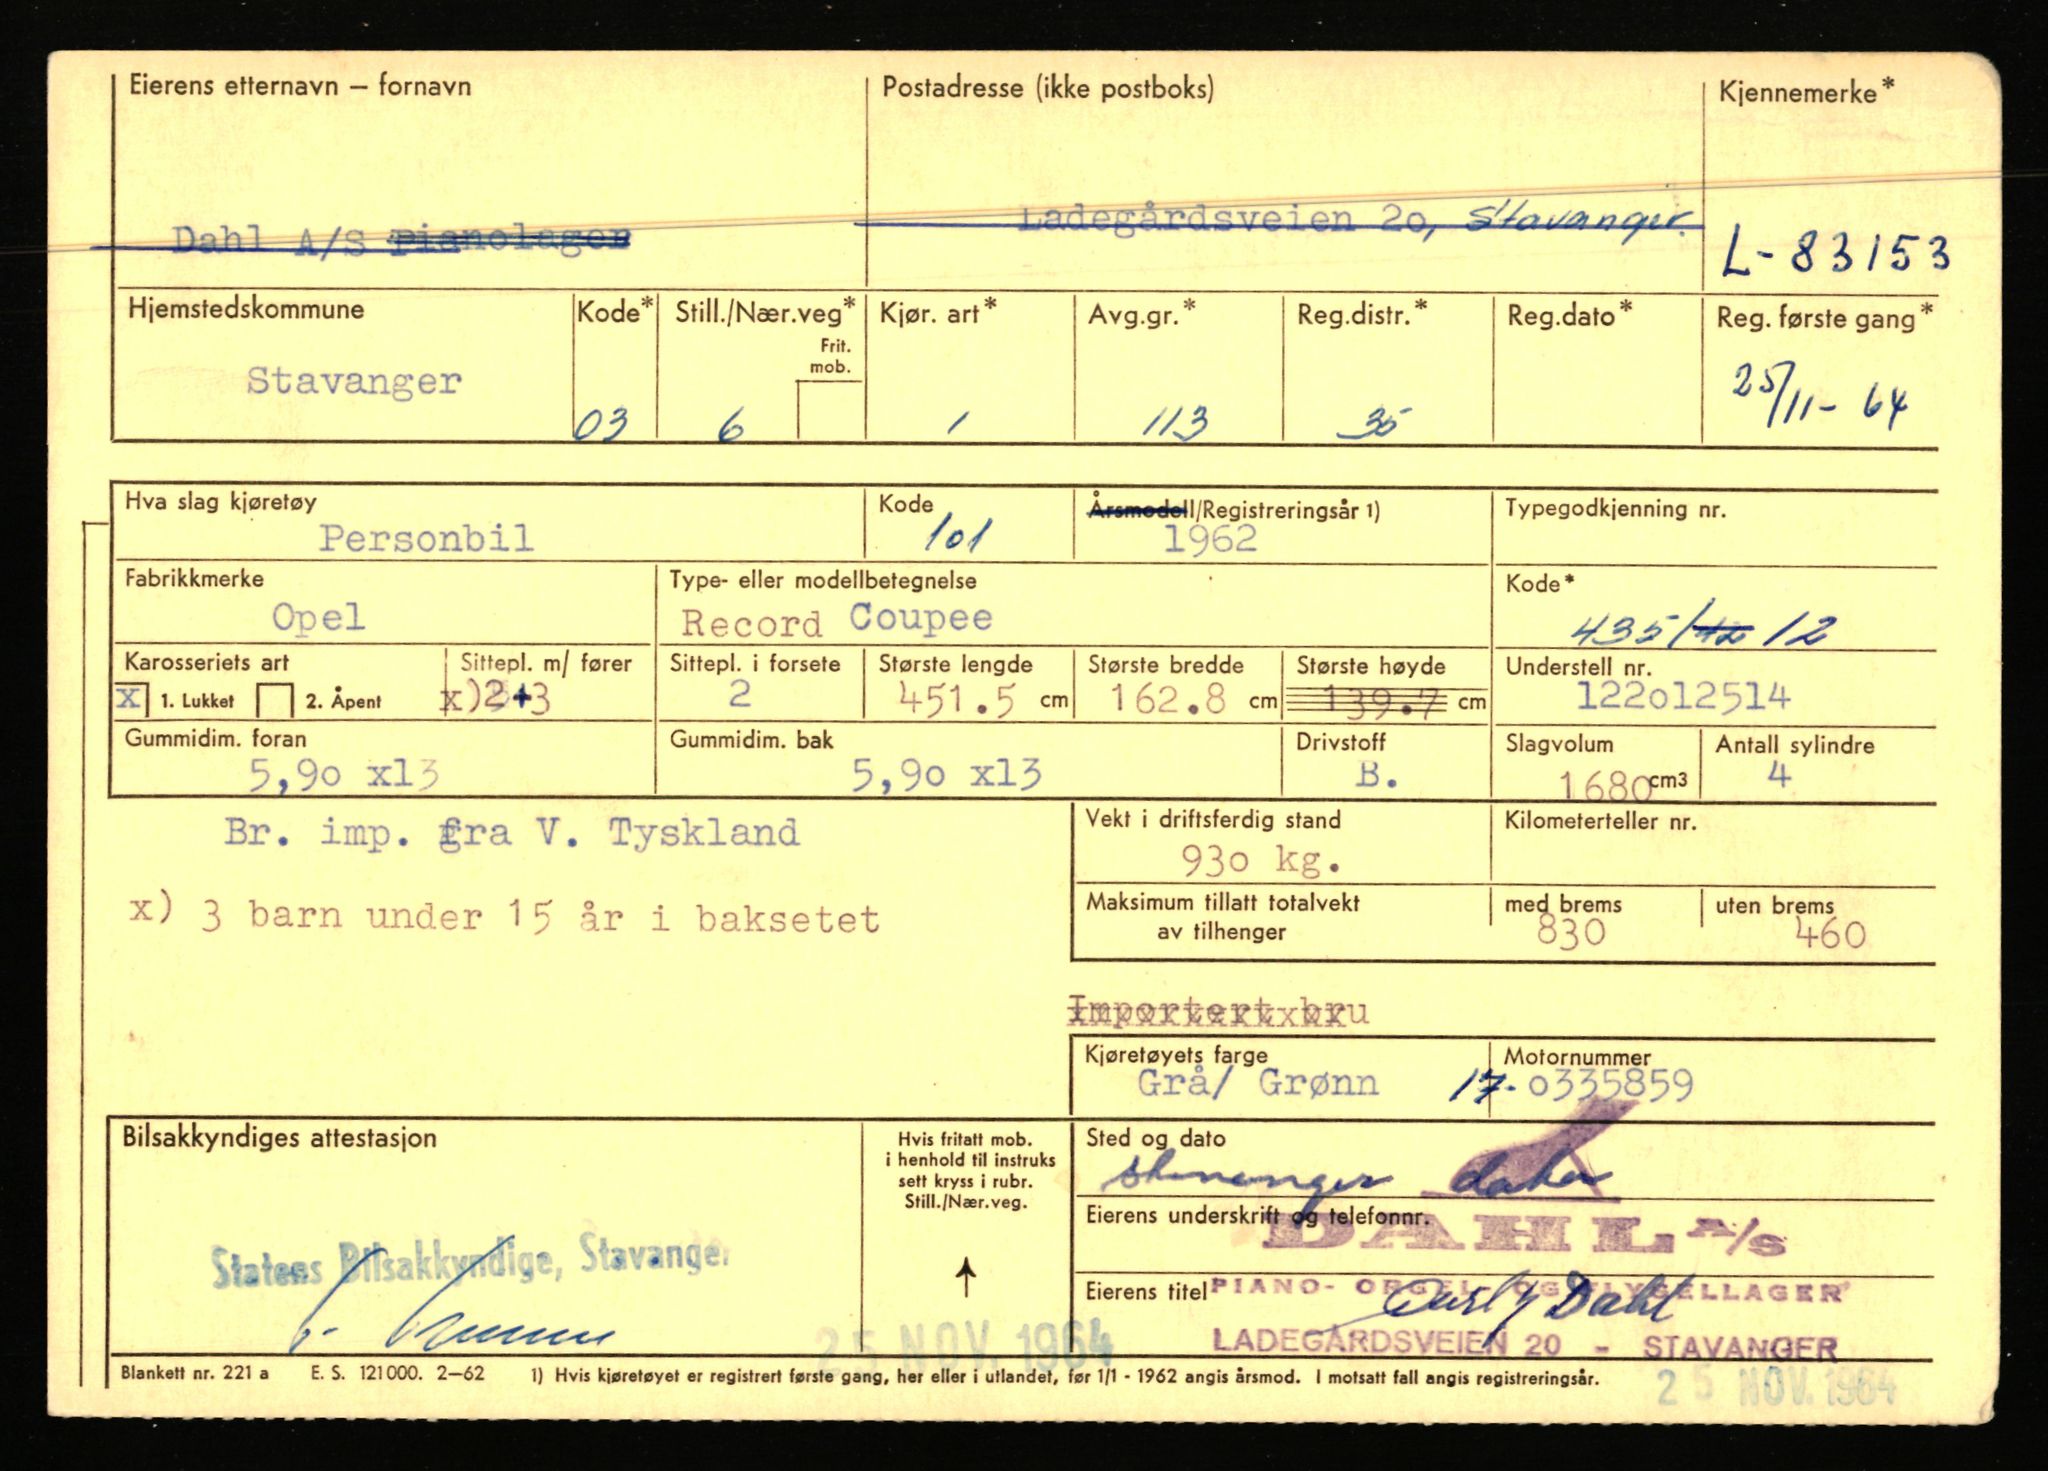 Eierens etternavn – fornavn
Postadresse (ikke postboks)
Kjennemerke*
Dahl A/S Pianolager
Ladegårdsveien 2o, Stavanger.
L-83153
Hjemstedskommune
Kode*
Still./Nær.veg*
Frit. mob.
Kjør. art*
Avg.gr.*
Reg.distr.*
Reg.dato*
Reg. første gang*
Stavanger
03
6
1
113
35
25/11- 64
Hva slag kjøretøy
Kode
Årsmodell/Registreringsår 1)
Typegodkjenning nr.
Personbil
101
1962
Fabrikkmerke
Type- eller modellbetegnelse
Kode*
Opel
Record Coupee
435/42 12
Karosseriets art
Sittepl. m/ fører
Sittepl. i forsete
Største lengde
Største bredde
Største høyde
Understell nr.
x 1. Lukket
2. Åpent
x)2+3
2
451.5 cm
162.8 cm
139.7 cm
122o12514
Gummidim. foran
Gummidim. bak
Drivstoff
Slagvolum
Antall sylindre
5,9o x13
5,9o x13
B.
1680 cm3
4
Br. imp. fra V. Tyskland
Vekt i driftsferdig stand
Kilometerteller nr.
93o kg.
x) 3 barn under 15 år i baksetet
Maksimum tillatt totalvekt
av tilhenger
med brems
830
uten brems
460
Importert bru
Kjøretøyets farge
Motornummer
Grå/ Grønn
17- o335859
Bilsakkyndiges attestasjon
Hvis fritatt mob.
i henhold til instruks
sett kryss i rubr.
Still./Nær.veg.
Sted og dato
Stavanger
Eierens underskrift og telefonnr.
DAHL A/S
Statens Bilsakkyndige, Stavanger
Eierens titel
PIANO- ORGEL- OG FLYGELLAGER
Dahl
LADEGÅRDSVEIEN 20 - STAVANGER
25 NOV. 1964
Blankett nr. 221 a E. S. 121000. 2–62 1) Hvis kjøretøyet er registrert første gang, her eller i utlandet, før 1/1 - 1962 angis årsmod. I motsatt fall angis registreringsår.
25 NOV. 1964